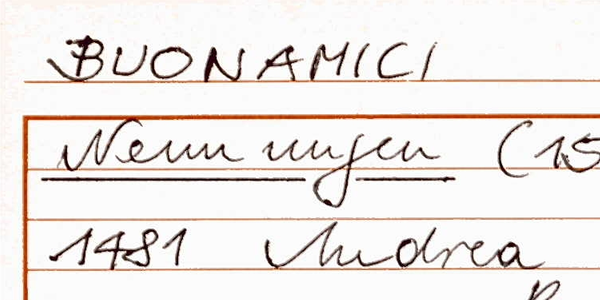 BUONAMICI
Nennungen (15
1481 Andrea